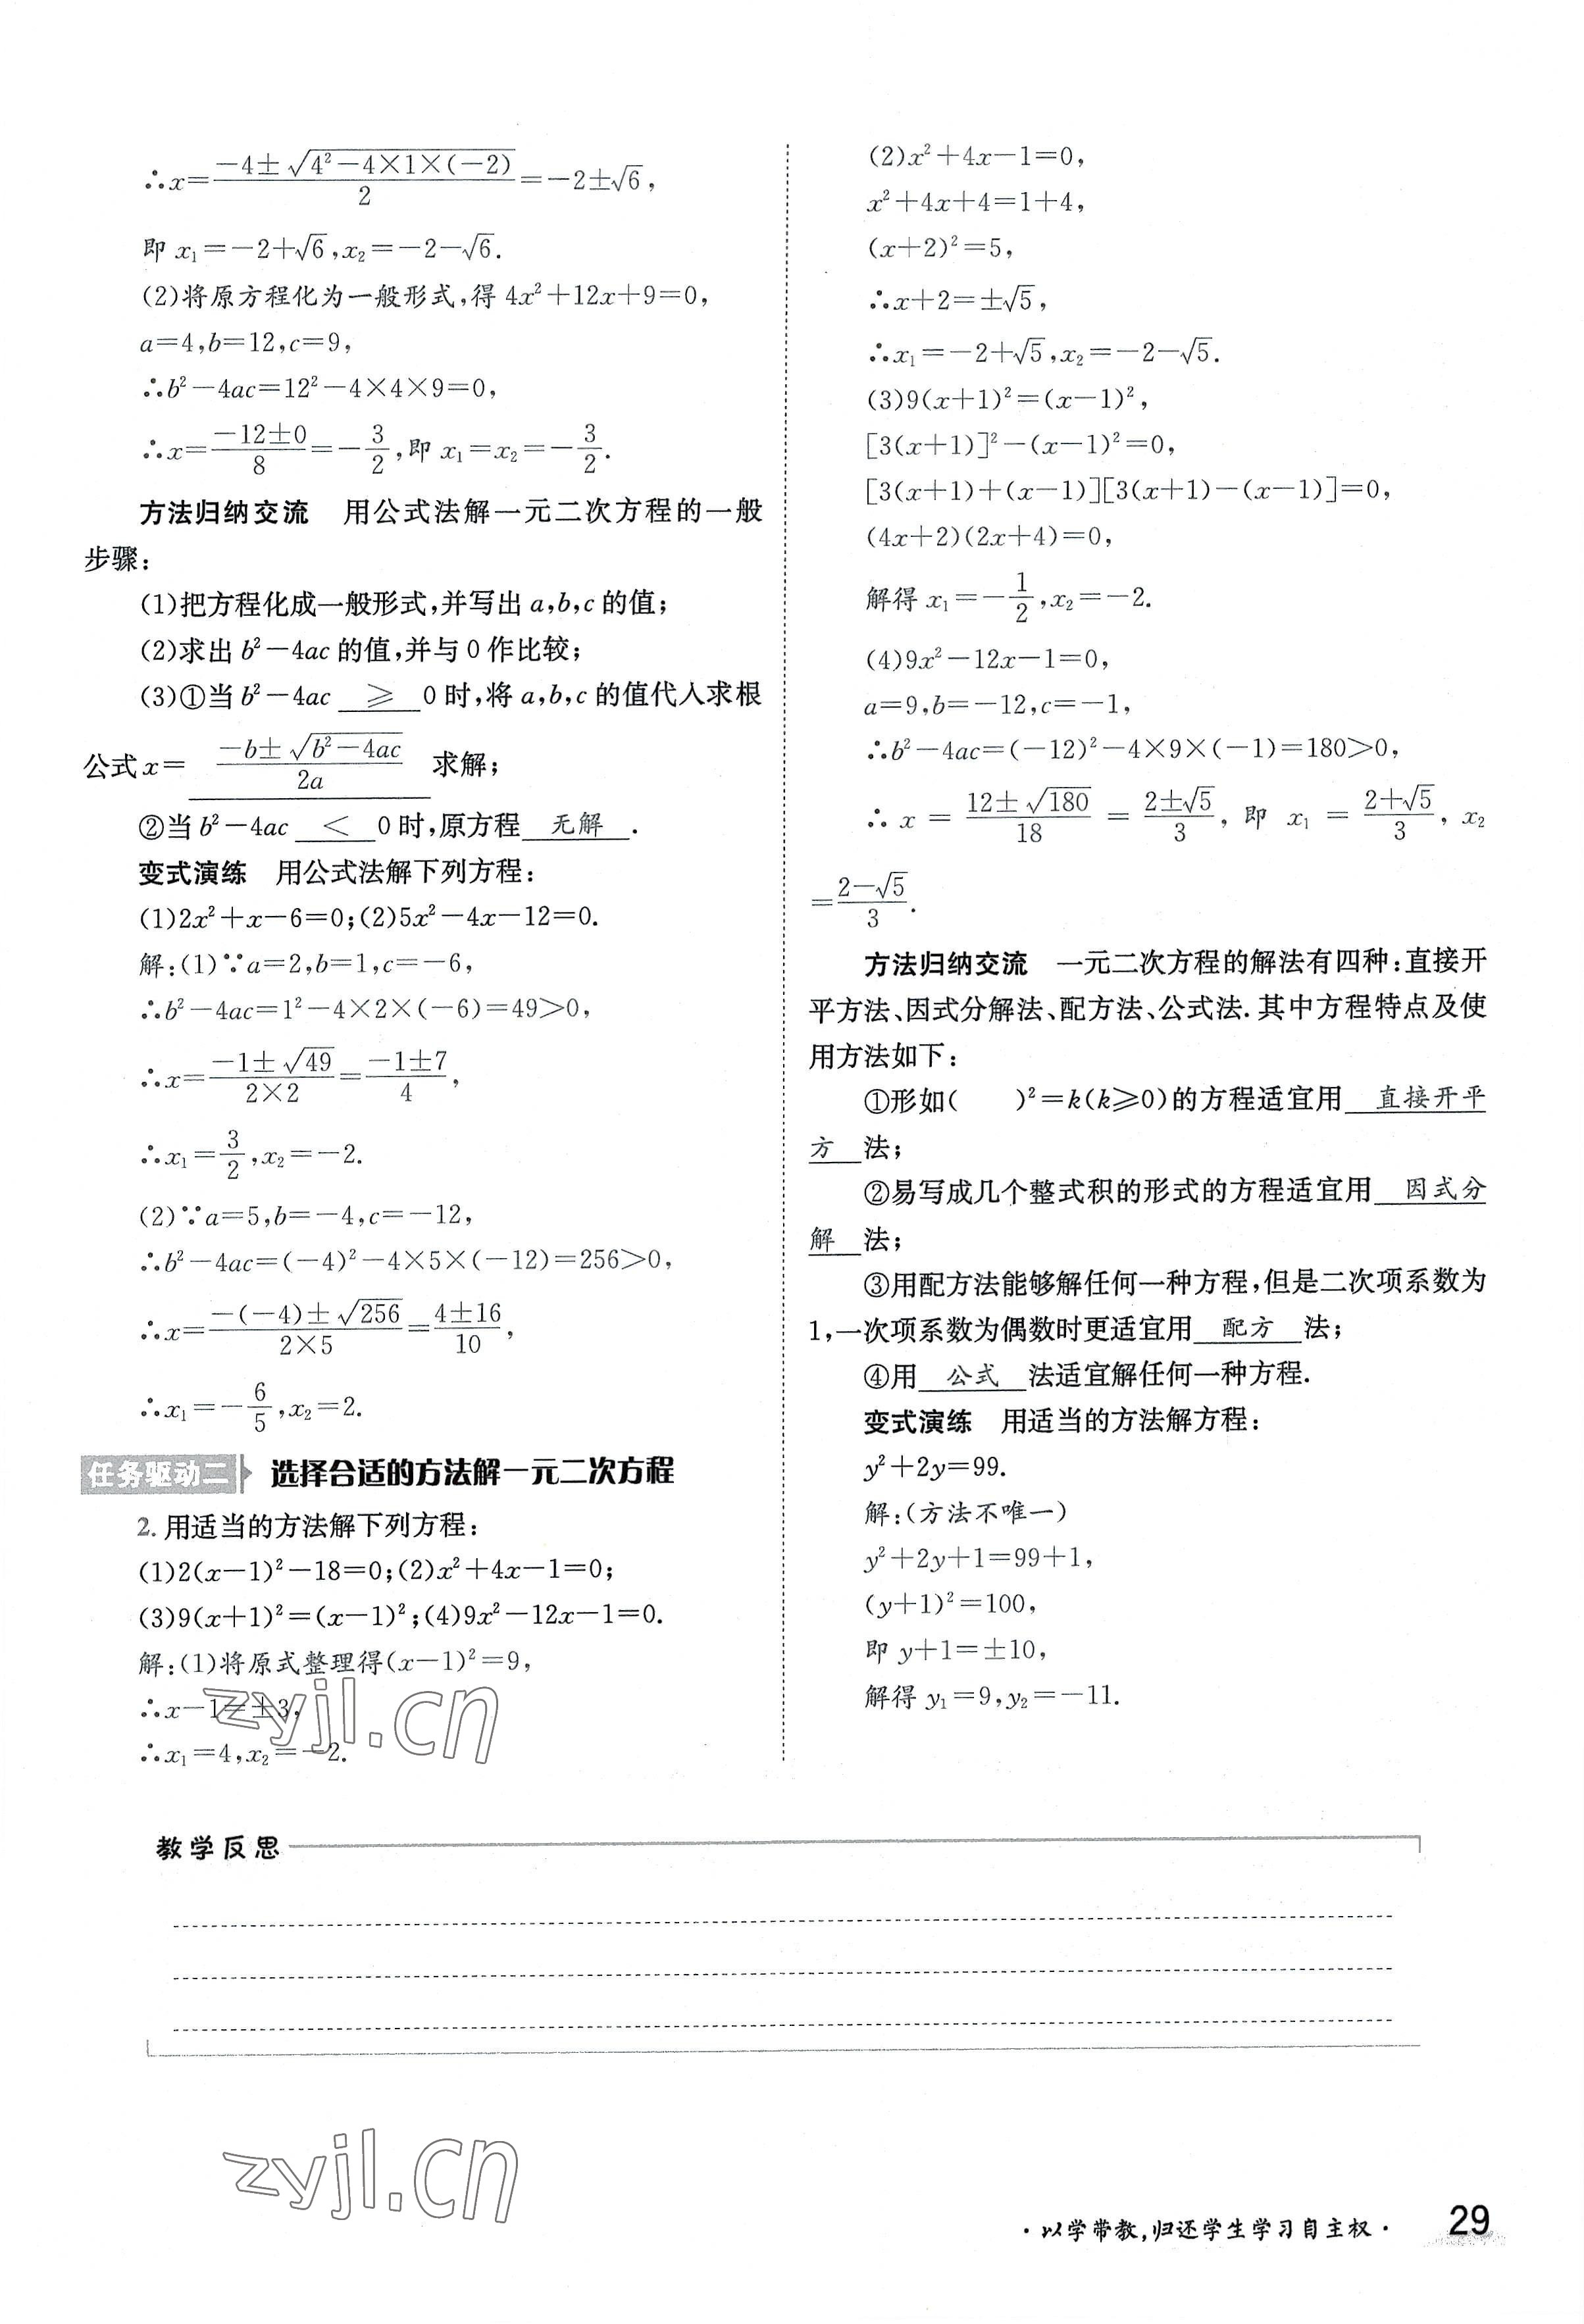 ∴x=(-4±√(4²-4×1×(-2)))/2=-2±√6,
即 x₁=-2+√6,x₂=-2-√6.
(2)将原方程化为一般形式,得 4x²+12x+9=0,
a=4,b=12,c=9,
∴b²-4ac=12²-4×4×9=0,
∴x=(-12±0)/8=-3/2,即 x₁=x₂=-3/2.
方法归纳交流 用公式法解一元二次方程的一般
步骤:
(1)把方程化成一般形式,并写出 a,b,c 的值;
(2)求出 b²-4ac 的值,并与 0 作比较;
(3)①当 b²-4ac ≥ 0 时,将 a,b,c 的值代入求根
公式 x= (-b±√(b²-4ac))/2a 求解;
②当 b²-4ac < 0 时,原方程 无解 .
变式演练 用公式法解下列方程:
(1)2x²+x-6=0;(2)5x²-4x-12=0.
解:(1)∵a=2,b=1,c=-6,
∴b²-4ac=1²-4×2×(-6)=49>0,
∴x=(-1±√49)/(2×2)=(-1±7)/4,
∴x₁=3/2,x₂=-2.
(2)∵a=5,b=-4,c=-12,
∴b²-4ac=(-4)²-4×5×(-12)=256>0,
∴x=(-(-4)±√256)/(2×5)=(4±16)/10,
∴x₁=-6/5,x₂=2.
任务驱动二 选择合适的方法解一元二次方程
2. 用适当的方法解下列方程:
(1)2(x-1)²-18=0;(2)x²+4x-1=0;
(3)9(x+1)²=(x-1)²;(4)9x²-12x-1=0.
解:(1)将原式整理得(x-1)²=9,
∴x-1=±3,
∴x₁=4,x₂=-2.
zyjl.cn
(2)x²+4x-1=0,
x²+4x+4=1+4,
(x+2)²=5,
∴x+2=±√5,
∴x₁=-2+√5,x₂=-2-√5.
(3)9(x+1)²=(x-1)²,
[3(x+1)]²-(x-1)²=0,
[3(x+1)+(x-1)][3(x+1)-(x-1)]=0,
(4x+2)(2x+4)=0,
解得 x₁=-1/2,x₂=-2.
(4)9x²-12x-1=0,
a=9,b=-12,c=-1,
∴b²-4ac=(-12)²-4×9×(-1)=180>0,
∴ x = (12±√180)/18 = (2±√5)/3, 即 x₁ = (2+√5)/3, x₂
=(2-√5)/3.
方法归纳交流 一元二次方程的解法有四种:直接开
平方法、因式分解法、配方法、公式法.其中方程特点及使
用方法如下:
①形如( )²=k(k≥0)的方程适宜用 直接开平
方 法;
②易写成几个整式积的形式的方程适宜用 因式分
解 法;
③用配方法能够解任何一种方程,但是二次项系数为
1,一次项系数为偶数时更适宜用 配方 法;
④用 公式 法适宜解任何一种方程.
变式演练 用适当的方法解方程:
y²+2y=99.
解:(方法不唯一)
y²+2y+1=99+1,
(y+1)²=100,
即 y+1=±10,
解得 y₁=9,y₂=-11.
教学反思
zyjl.cn
·以学带教,归还学生学习自主权· 29